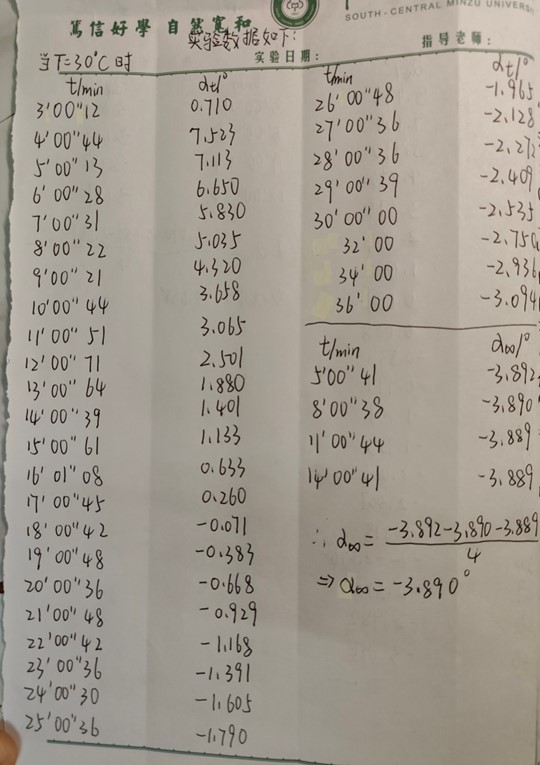 SOUTH-CENTRAL MINZU UNIVERS
篤信好學 自然寬和
实验数据如下:
实验日期: 指导老师:
当T=30℃时
t/min αt/°
3'00"12 0.710
4'00"44 7.523
5'00"13 7.113
6'00"28 6.650
7'00"31 5.830
8'00"22 5.035
9'00"21 4.320
10'00"44 3.658
11'00"51 3.065
12'00"71 2.501
13'00"64 1.880
14'00"39 1.401
15'00"61 1.133
16'01"08 0.633
17'00"45 0.260
18'00"42 -0.071
19'00"48 -0.383
20'00"36 -0.668
21'00"48 -0.929
22'00"42 -1.168
23'00"36 -1.391
24'00"30 -1.605
25'00"36 -1.790
t/min αt/°
26'00"48 -1.965
27'00"36 -2.128
28'00"36 -2.272
29'00"39 -2.409
30'00"00 -2.535
32'00 -2.750
34'00 -2.936
36'00 -3.094
t/min α∞/°
5'00"41 -3.892
8'00"38 -3.890
11'00"44 -3.889
14'00"41 -3.889
∴ α∞ = -3.892-3.890-3.889
4
⇒ α∞ = -3.890°